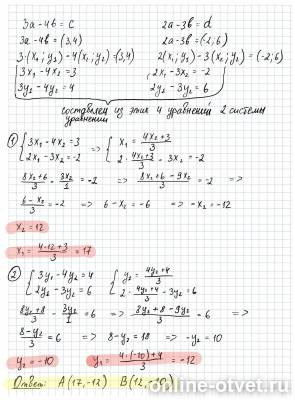 3a - 4b = c   2a - 3b = d
3a - 4b = (3,4)   2a - 3b = (-2; 6)
3·(x₁; y₁) - 4(x₂; y₂) = (3,4)   2(x₁; y₁) - 3(x₂; y₂) = (-2; 6)
3x₁ - 4x₂ = 3   2x₁ - 3x₂ = -2
3y₂ - 4y₂ = 4   2y₂ - 3y₂ = 6
составляем из этих 4 уравнений 2 системы
уравнений
① { 3x₁ - 4x₂ = 3 => { x₁ = (4x₂+3)/3
2x₁ - 3x₂ = -2   2·(4x₂+3)/3 - 3x₂ = -2
(8x₂+6)/3 - 3x₂/1 = -2 => (8x₂+6-9x₂)/3 = -2 =>
(6-x₂)/3 = -2 => 6 - x₂ = -6 => -x₂ = -12
x₂ = 12
x₁ = (4·12+3)/3 = 17
② { 3y₁ - 4y₂ = 4   { y₂ = (4y₂+4)/3
2y₂ - 3y₂ = 6   2·(4y₂+4)/3 - 3y₂ = 6
(8y₂+8)/3 - 3y₂/1 = 6 => (8y₂+8-9y₂)/3 = 6 =>
(8-y₂)/3 = 6 => 8 - y₂ = 18 => -y₂ = -10
y₂ = -10   y₁ = (4·(-10)+4)/3 = -12
Ответ: A(17,-12) B(12,-10)
online-otvet.ru